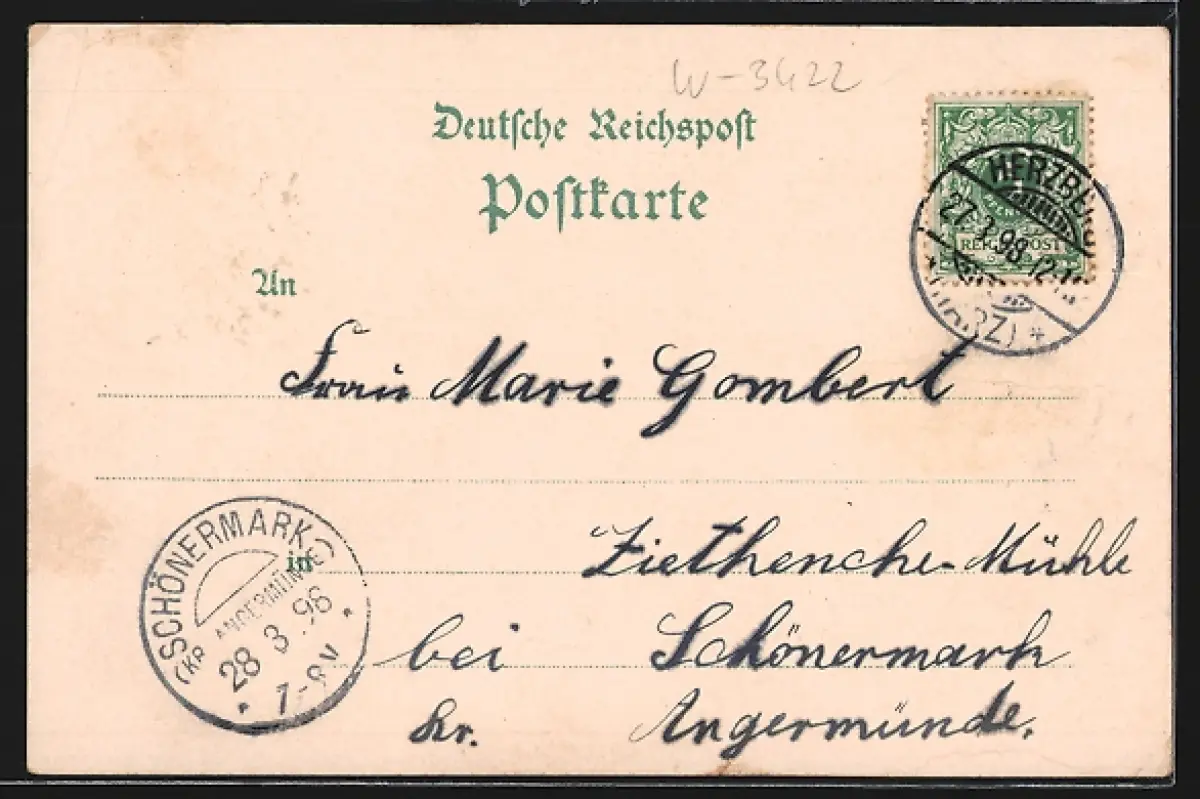 W-3422
Deutsche Reichspost
Postkarte
An
HERZBERG
27.3.98
REICHSPOST
(HARZ) *
Frau Marie Gombert
in
Ziethenche-Mühle
bei Schönermark
Kr. Angermünde.
SCHÖNERMARK
(KR ANGERMÜNDE)
28 3.98
* 7-8 V *